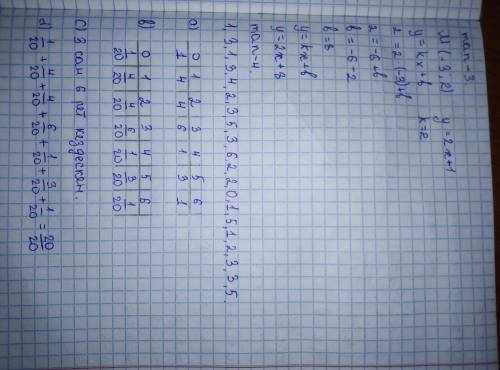 тап-3
M(-3, 2) y = 2x+1
y = kx+b k=2
2 = 2·(-3)+b
2 = -6+b
b = -6-2
b = 8
y = kx+b
y = 2x+8
тап-4.
1, 3, 1, 3, 4, 2, 3, 5, 3, 6, 2, 2, 0, 1, 5, 1, 2, 3, 3, 5.
a) 0 1 2 3 4 5 6
1 4 4 6 1 3 1
b) 0 1 2 3 4 5 6
1/20 4/20 4/20 6/20 1/20 3/20 1/20
c) 3 сан 6 рет кездескен.
d) 1/20 + 4/20 + 4/20 + 6/20 + 1/20 + 3/20 + 1/20 = 20/20